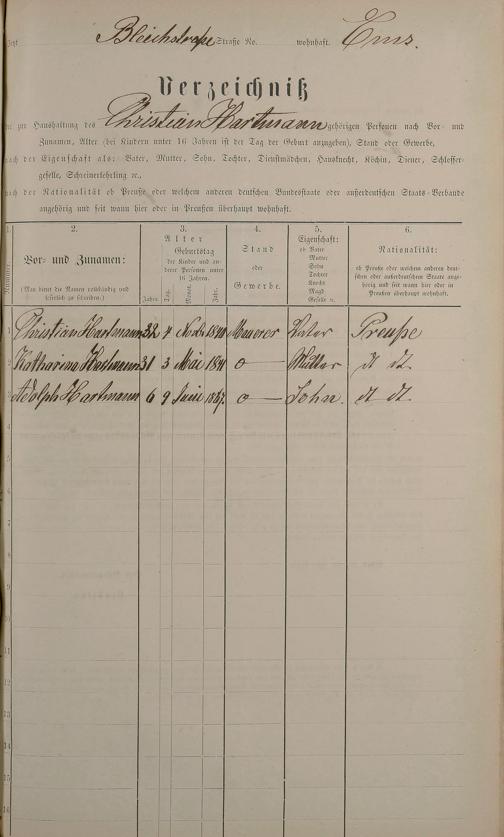 Jetzt Bleichstraße Straße No. wohnhaft. Ems.
Verzeichniß
zur Haushaltung des Christian Hartmann gehörigen Personen nach Vor- und
Zunamen, Alter (bei Kindern unter 16 Jahren ist der Tag der Geburt anzugeben), Stand oder Gewerbe,
nach der Eigenschaft als: Vater, Mutter, Sohn, Tochter, Dienstmädchen, Hausknecht, Köchin, Diener, Schlosser-
geselle, Schreinerlehrling ꝛc.,
nach der Nationalität ob Preuße oder welchem anderen deutschen Bundesstaate oder außerdeutschen Staats-Verbande
angehörig und seit wann hier oder in Preußen überhaupt wohnhaft.
1. 2. 3. 4. 5. 6.
Nummer.
Vor- und Zunamen:
(Man bittet die Namen vollständig und leserlich zu schreiben.)
Alter
Geburtstag
der Kinder und an-
derer Personen unter
16 Jahren.
Jahre. Tag. Monat. Jahr.
Stand
oder
Gewerbe.
Eigenschaft:
ob Vater
Mutter
Sohn
Tochter
Knecht
Magd
Geselle ꝛc.
Nationalität:
ob Preuße oder welchem anderen deut-
schen oder außerdeutschen Staate ange-
hörig und seit wann hier oder in
Preußen überhaupt wohnhaft.
1 Christian Hartmann 32 4 1840 Maurer Vater Preuße
2 Katharina Hartmann 31 3 Mai 1841 o Mutter dt dt.
3 Adolph Hartmann 6 9 Juni 1867 o Sohn. dt dt.
4
5
6
7
8
9
10
11
12
13
14
15
16